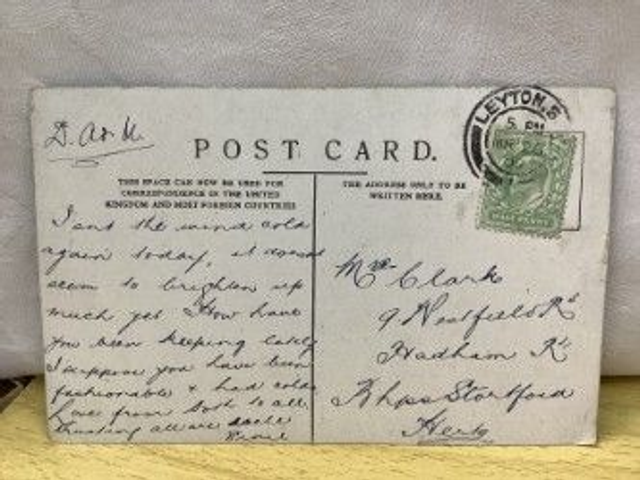 D. A & U.
POST CARD.
LEYTON. E
5 PM
THIS SPACE CAN NOW BE USED FOR
CORRESPONDENCE IN THE UNITED
KINGDOM AND MOST FOREIGN COUNTRIES
THE ADDRESS ONLY TO BE
WRITTEN HERE.
Isnt the wind cold
again today, it doesnt
seem to brighten up
much yet How have
you been keeping lately
I suppose you have been
fashionable & had colds
Love from both to all
trusting all are
Mrs Clark
9 Westfield Rd
Hadham Rd
Bhps Stortford
Herts